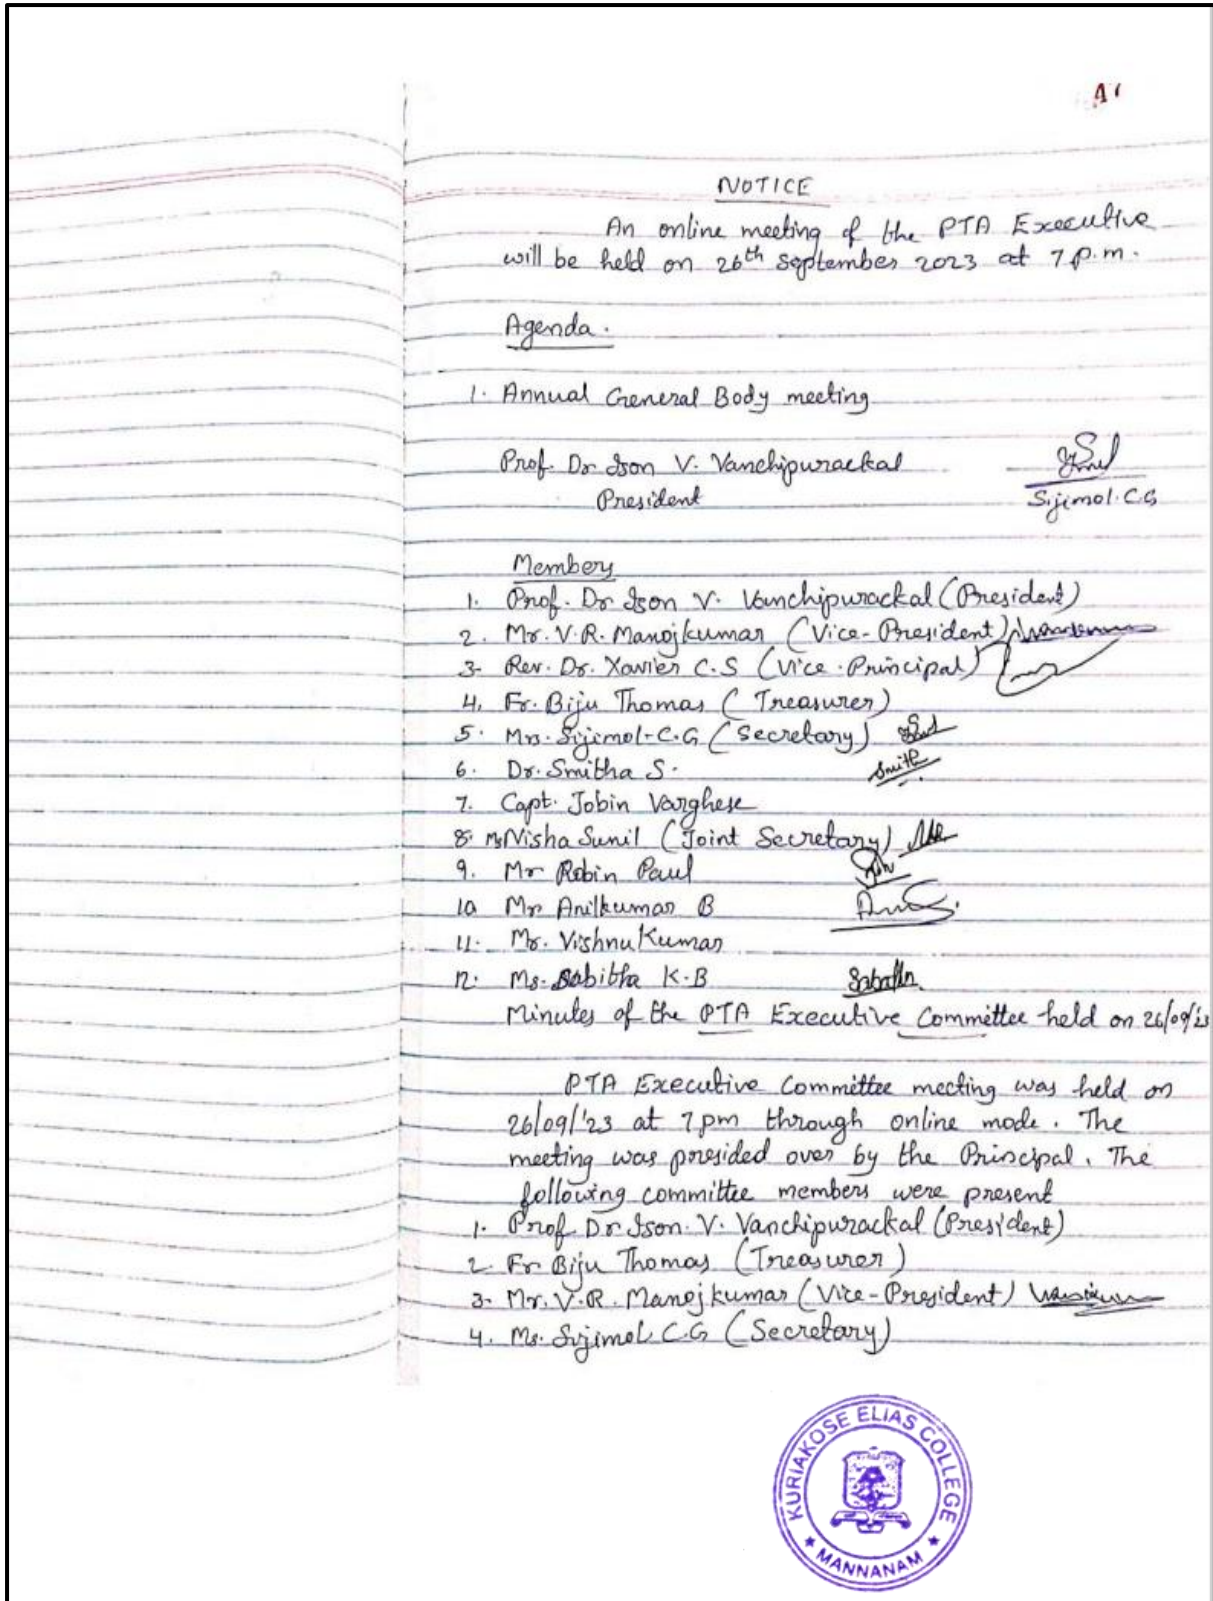 NOTICE
An online meeting of the PTA Executive
will be held on 26th September 2023 at 7 p.m.
Agenda.
1. Annual General Body meeting
Prof. Dr Ison V. Vanchipurackal
President
Sijimol. C.G
Members
1. Prof. Dr Ison V. Vanchipurackal (President)
2. Mr. V.R. Manojkumar (Vice-President)
3. Rev. Dr. Xavier C.S (Vice-Principal)
4. Fr. Biju Thomas (Treasurer)
5. Mrs. Sijimol-C.G (Secretary)
6. Dr. Smitha S. Smith
7. Capt. Jobin Varghese
8. Ms Nisha Sunil (Joint Secretary)
9. Mr Robin Paul
10 Mr Anilkumar B
11. Mr. Vishnu Kumar
12. Ms. Sabitha K.B
Minutes of the PTA Executive Committee held on 26/09/23
PTA Executive Committee meeting was held on
26/09/'23 at 7 pm through online mode. The
meeting was presided over by the Principal. The
following committee members were present
1. Prof Dr Ison. V. Vanchipurackal (President)
2. Fr Biju Thomas (Treasurer)
3. Mr. V.R. Manojkumar (Vice-President)
4. Ms. Sijimol C.G (Secretary)
KURIAKOSE ELIAS COLLEGE
MANNANAM